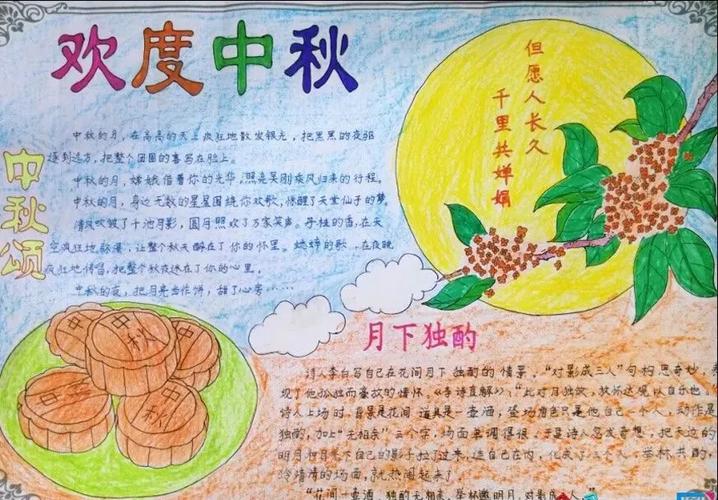 欢度中秋
但愿人长久
千里共婵娟
中秋颂
中秋的月，在高高的天上疯狂地散发银光，把黑黑的夜驱
逐到远方，把整个团圆的喜写在脸上。
中秋的月，嫦娥借着你的光华，照亮吴刚乘风归来的行程。
中秋的月，身边无数的星星围绕你欢歌，惊醒了天堂仙子的梦。
清风吹皱了十池月影，圆月照欢了万家笑声。丹桂的香，在天
空疯狂地弥漫，让整个秋天醉在了你的怀里。蟋蟀的歌，在夜晚
疯狂地传唱，把整个秋夜迷在了你的心里。
中秋的夜，把月亮当作饼，甜了心房……
中秋
中秋
中秋
中秋
月下独酌
诗人李白写自己在花间月下独酌的情景，“对影成三人”句构思奇妙，表
现了他孤独而豪放的情怀。《李诗直解》：“此对月独饮，放怀达观以自乐也。
诗人上场时，背景是花间，道具是一壶酒，登场角色只是他自己一个人，动作是
独酌，加上“无相亲”三个字，场面单调得很。于是诗人忽发奇想，把天边的
明月和月光下自己的影子拉了过来，连自己在内，化成了三个人，举杯共酌，
冷清清的场面，就热闹起来了
“花间一壶酒，独酌无相亲。举杯邀明月，对影成三人。”